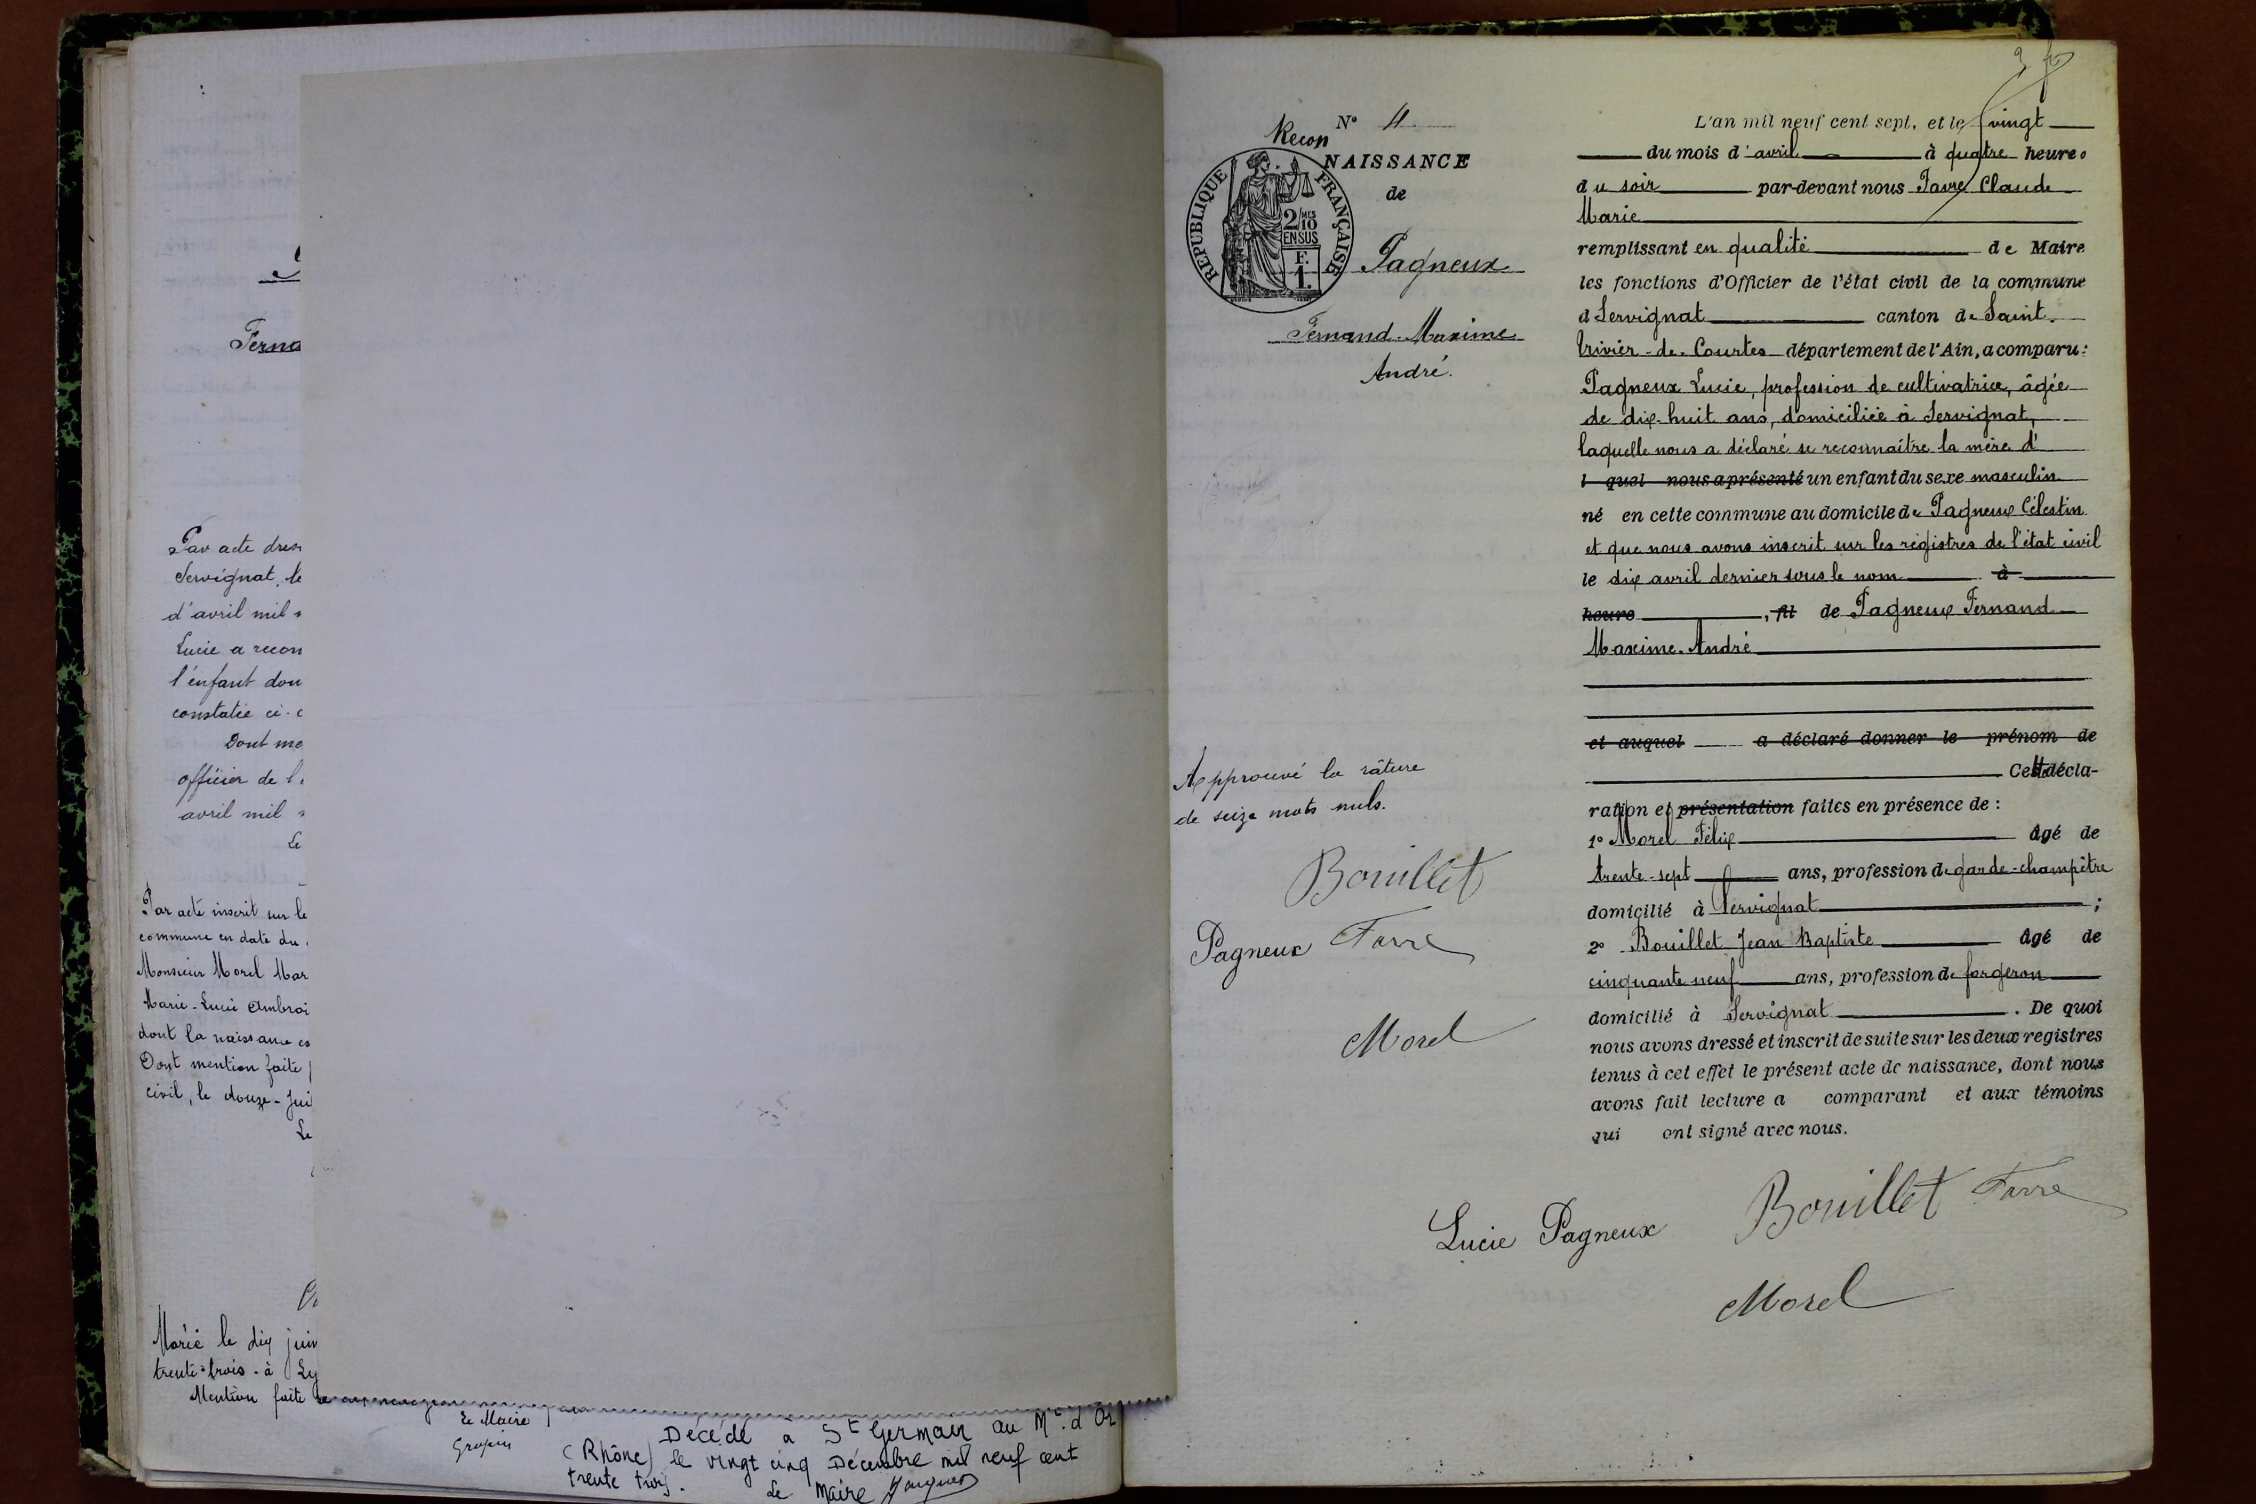 Ferna
Par acte dres
Servignat, le
d'avril mil n
Lucie a recon
l'enfant don
constatée ci-
Dont me
officier de l'
avril mil
Le
Par acte inscrit sur le
commune en date du
Monsieur Morel Mar
Marie-Lucie Ambroi
dont la naissance es
Dont mention faite
civil, le douze-Jui
Le
Marié le dix juin
trente-trois-à Ly
Mention faite
Le Maire
Décédé à St Germain au Mt. d'Or
(Rhône) le vingt cinq Décembre mil neuf cent
trente trois.
Le Maire
N° 4
Recon
NAISSANCE
de
REPUBLIQUE FRANÇAISE
2/MES 10
EN SUS
F.
1.
Pagneux
Fernand-Maxime
André.
Approuvé la râture
de seize mots nuls.
Bouillet
Pagneux Favre
Morel
L'an mil neuf cent sept, et le vingt
du mois d'avril à quatre heures
du soir par-devant nous Favre Claude
Marie
remplissant en qualité de Maire
les fonctions d'Officier de l'état civil de la commune
d Servignat canton de Saint-
Trivier-de-Courtes département de l'Ain, a comparu:
Pagneux Lucie, profession de cultivatrice, âgée
de dix-huit ans, domiciliée à Servignat,
laquelle nous a déclaré se reconnaître la mère d'
l quel nous a présenté un enfant du sexe masculin
né en cette commune au domicile de Pagneux Célestin
et que nous avons inscrit sur les registres de l'état civil
le dix avril dernier sous le nom à
heure , fil de Pagneux Fernand
Maxime-André
et auquel a déclaré donner le prénom de
Cette décla-
ration et présentation faites en présence de :
1° Morel Félix âgé de
trente-sept ans, profession de garde-champêtre
domicilié à Servignat ;
2° Bouillet Jean Baptiste âgé de
cinquante neuf ans, profession de forgeron
domicilié à Servignat . De quoi
nous avons dressé et inscrit de suite sur les deux registres
tenus à cet effet le présent acte de naissance, dont nous
avons fait lecture a comparant et aux témoins
qui ont signé avec nous.
Lucie Pagneux Bouillet Favre
Morel